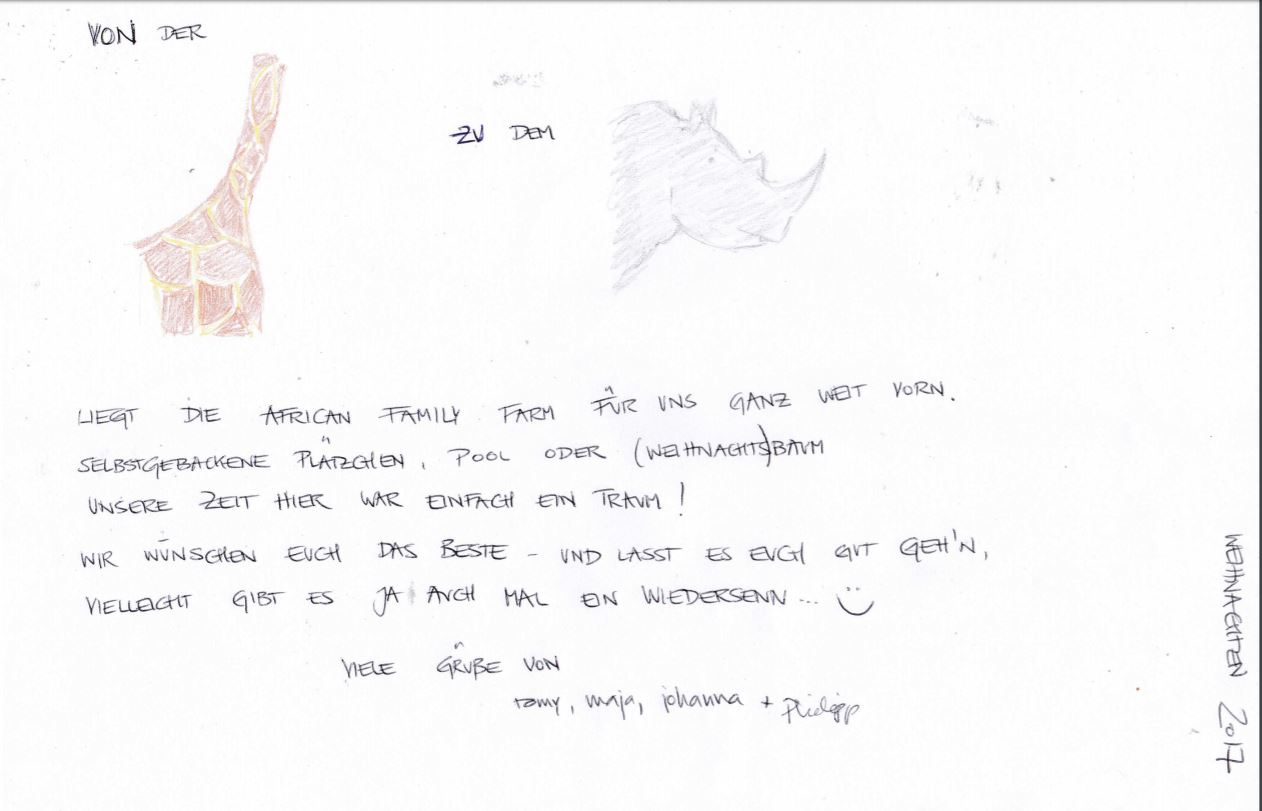 VON DER
ZU DEM
LIEGT DIE AFRICAN FAMILY FARM FÜR UNS GANZ WEIT VORN.
SELBSTGEBACKENE PLÄTZCHEN, POOL ODER (WEIHNACHTS)BAUM
UNSERE ZEIT HIER WAR EINFACH EIN TRAUM!
WIR WÜNSCHEN EUCH DAS BESTE - UND LASST ES EUCH GUT GEH'N,
VIELLEICHT GIBT ES JA AUCH MAL EIN WIEDERSEHN...
VIELE GRÜßE VON
romy, maja, johanna + Philipp
WEIHNACHTEN 2017